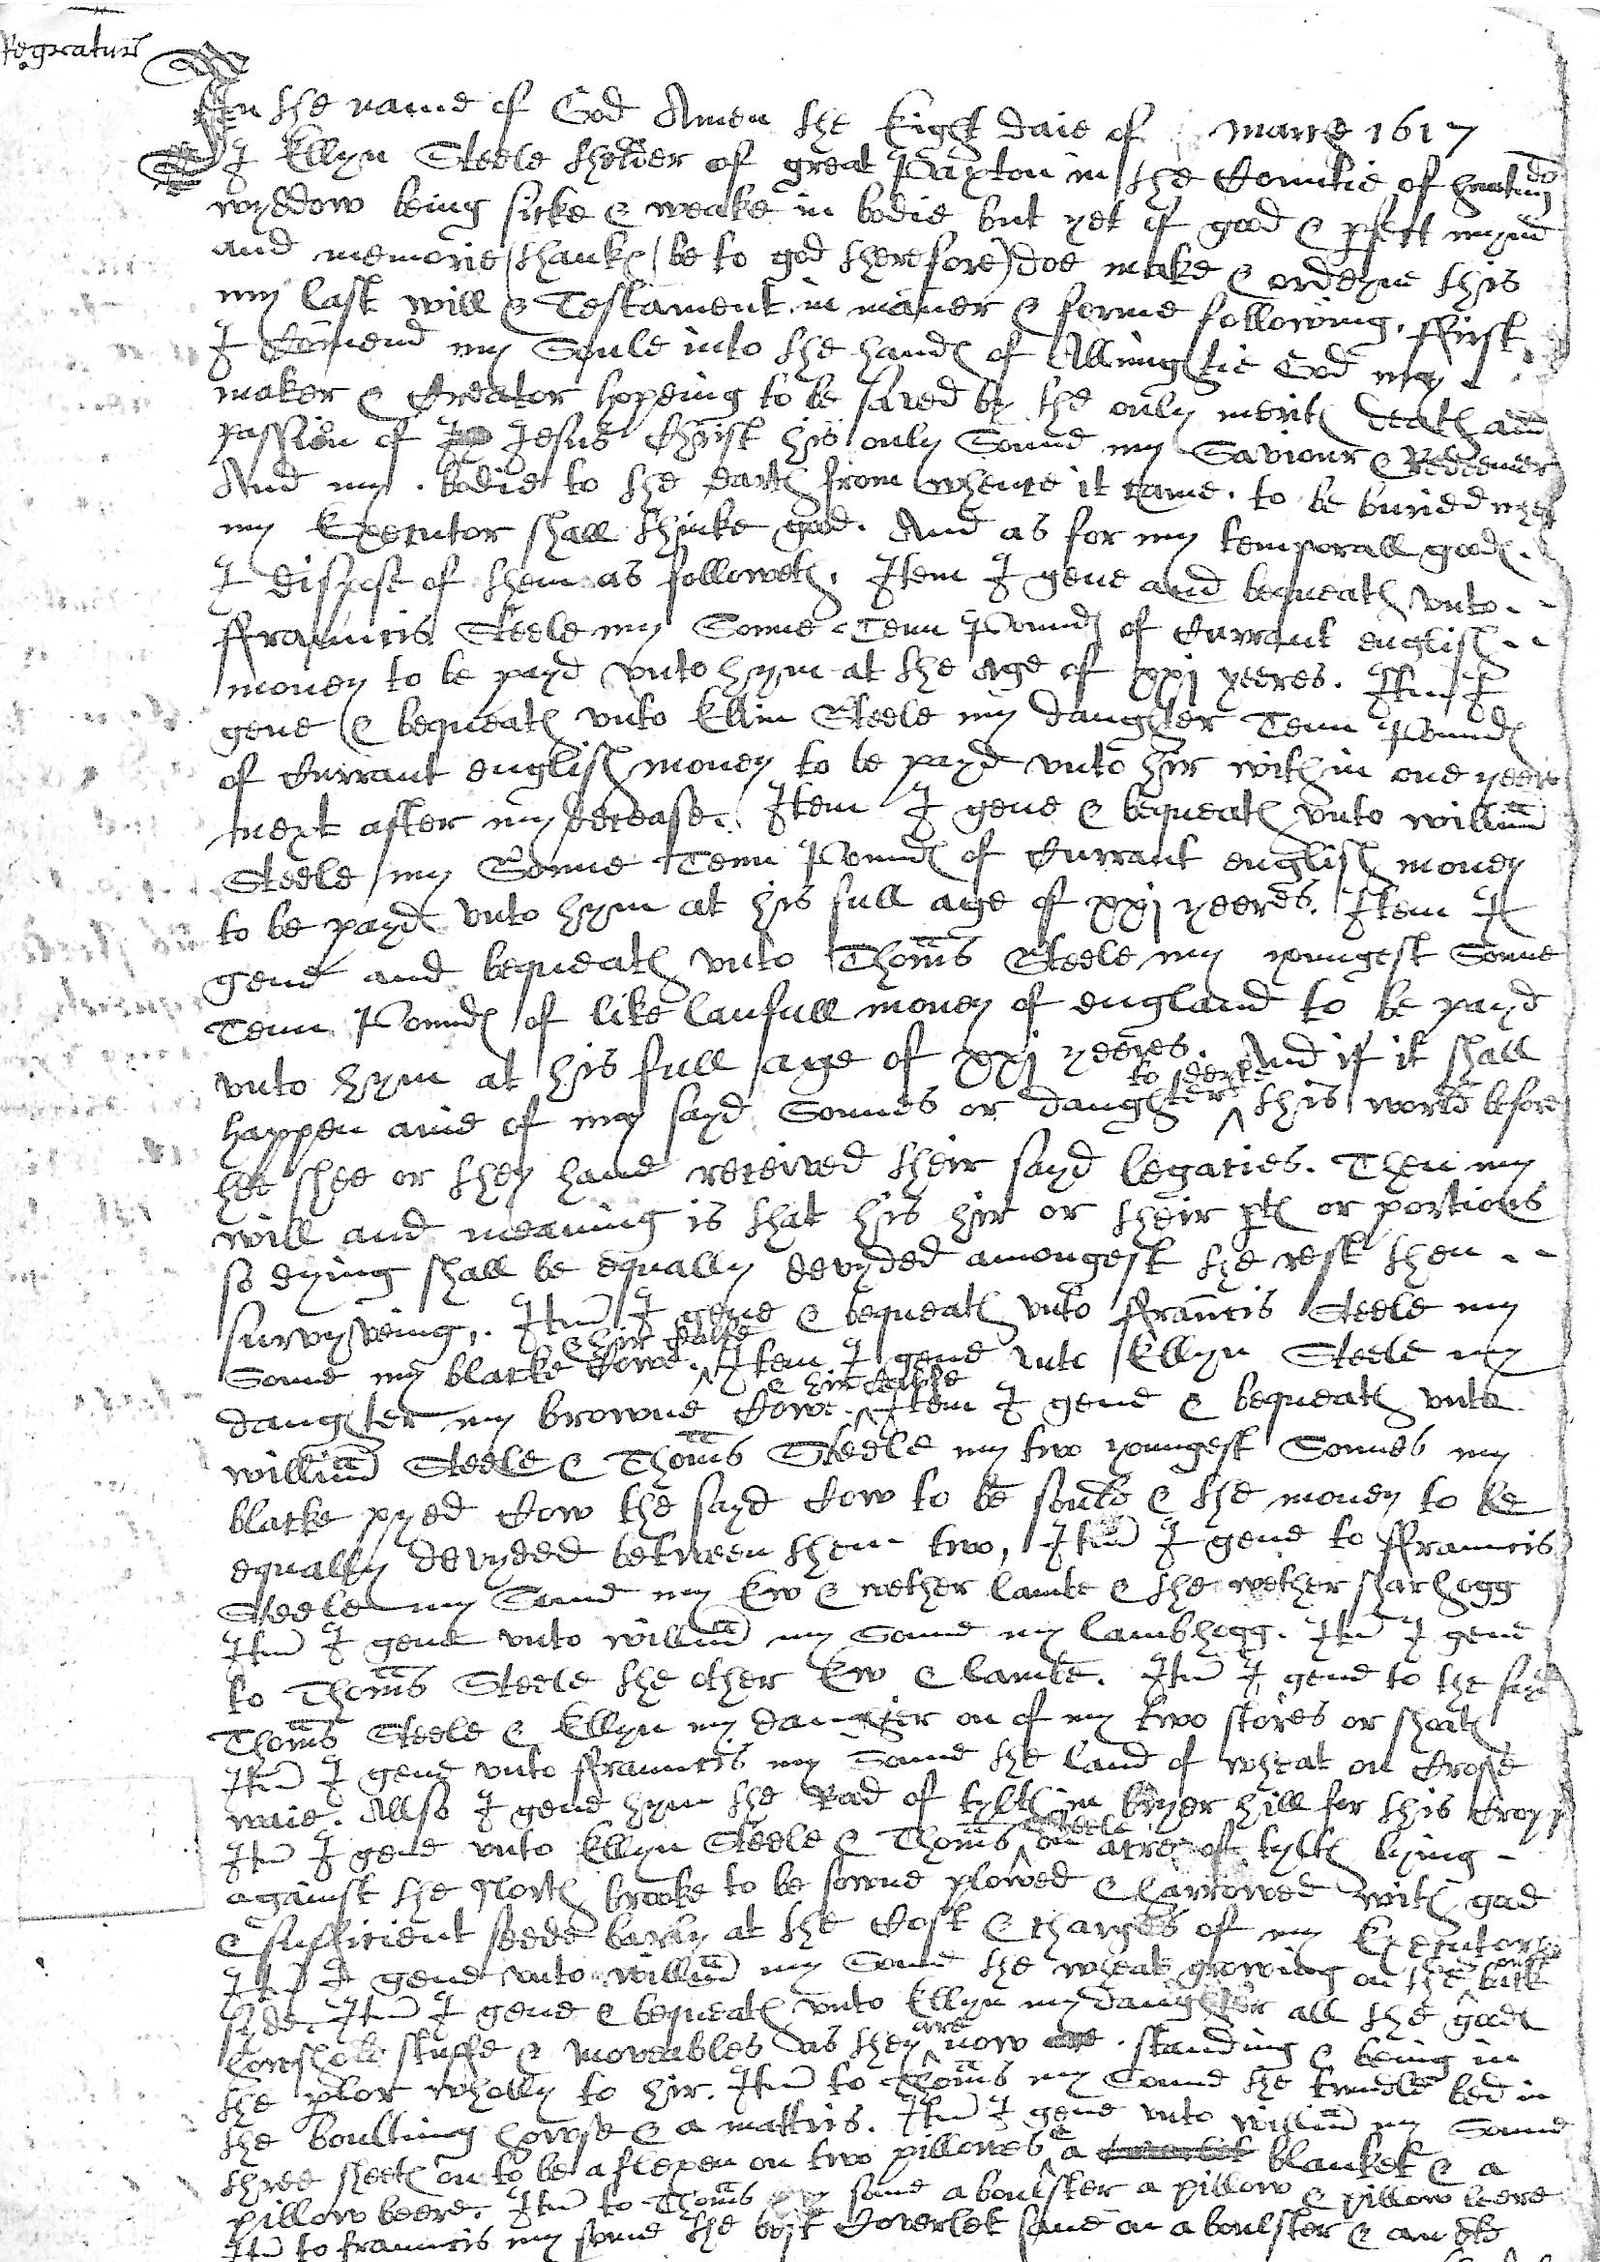 Registratur
In the name of God Amen the Eight daie of marche 1617
I Ellyn Steele the elder of great Paxton in the Countie of hunting do
wyddow being sicke & weake in bodie but yet of good & pfect mynd
and memorie (thankes be to god therefore) doe make & ordeyne this
my last will & Testament in maner & forme following. ffirst
I Comend my Soule into the handes of Allmightie God my
maker & Creator hopeing to be saved by the only merites death and
passion of Jesus Christ his only Sonne my Saviour & Redeemer
And my bodie to the earth from whence it came. to be buried
my Executor shall thinke good. And as for my temporall goodes.
I dispose of them as followeth. Item I geve and bequeath unto
ffrauncis Steele my Sonne Tenn Poundes of Currant english
money to be payd unto hym at the age of xxj yeeres. Itm I
geve & bequeath unto Ellin Steele my daughter Tenn Poundes
of Currant english money to be payd unto hir within one yeere
next after my decease. Item I geve & bequeath unto william
Steele my Sonne Tenn Poundes of Currant english money
to be payd unto hym at his full age of xxj yeeres. Item I
geve and bequeath unto Thoms Steele my youngest Sonne
Tenn Poundes of like laufull money of england to be payd
unto hym at his full age of xxj yeeres. And if it shall
happen anie of my sayd Sonnes or daughters ^ to departe this world before
he shee or they have received their sayd legacies. Then my
will and meaning is that his hir or their ptes or portions
so dying shall be equally devyded amongest the rest then
survyveing. Itm I geve & bequeath unto ffrancis Steele my
Sonne my blacke Cowe ^ & hir Calfe. Item I geve unto Ellyn Steele my
daughter my browne Cowe ^ & hir Calfe. Item I geve & bequeath unto
william Steele & Thoms Steele my two youngest Sonnes my
blacke pyed Cow the sayd Cow to be sould & the money to be
equally devyded betweene them two, Itm I geve to ffrauncis
Steele my Sonne my Ew & wether lambe & the wether sharhogg
Itm I geve unto willim my Sonne my lambhogg. Itm I geve
to Thoms Steele the other Ew & lambe. Itm I geve to the sayd
Thoms Steele & Ellyn my daughter on of my two stores or shotes
Itm I geve unto ffrauncis my Sonne the land of wheat on Crosse
waie. Allso I geve hym the Rod of tylth in bryer hill for this Cropp
Itm I geve unto Ellyn Steele & Thoms ^ Steele on acre of tylth lying
against the North brooke to be sowne plowed & harrowed with good
& sufficient seede barly at the Cost & charges of my Executor
Itm I geve unto willim my Sonne the wheat growing on the back
syde. Itm I geve & bequeath unto Ellyn my daughter all the goodes
howshold stuffe & moveables as they ^ are now standing & being in
the plor wholly to hir. Itm to Thoms my Sonne the trundle bed in
the boulting howse & a mattris. Itm I geve unto willim my Sonne
three sheetes on to be a flexen on two pillowes ^ a blanket & a
pillow beere. Itm to Thoms my sonne a boulster a pillow & pillow beere
Itm to francis my sonne the best Coverlet save on a boulster & an old